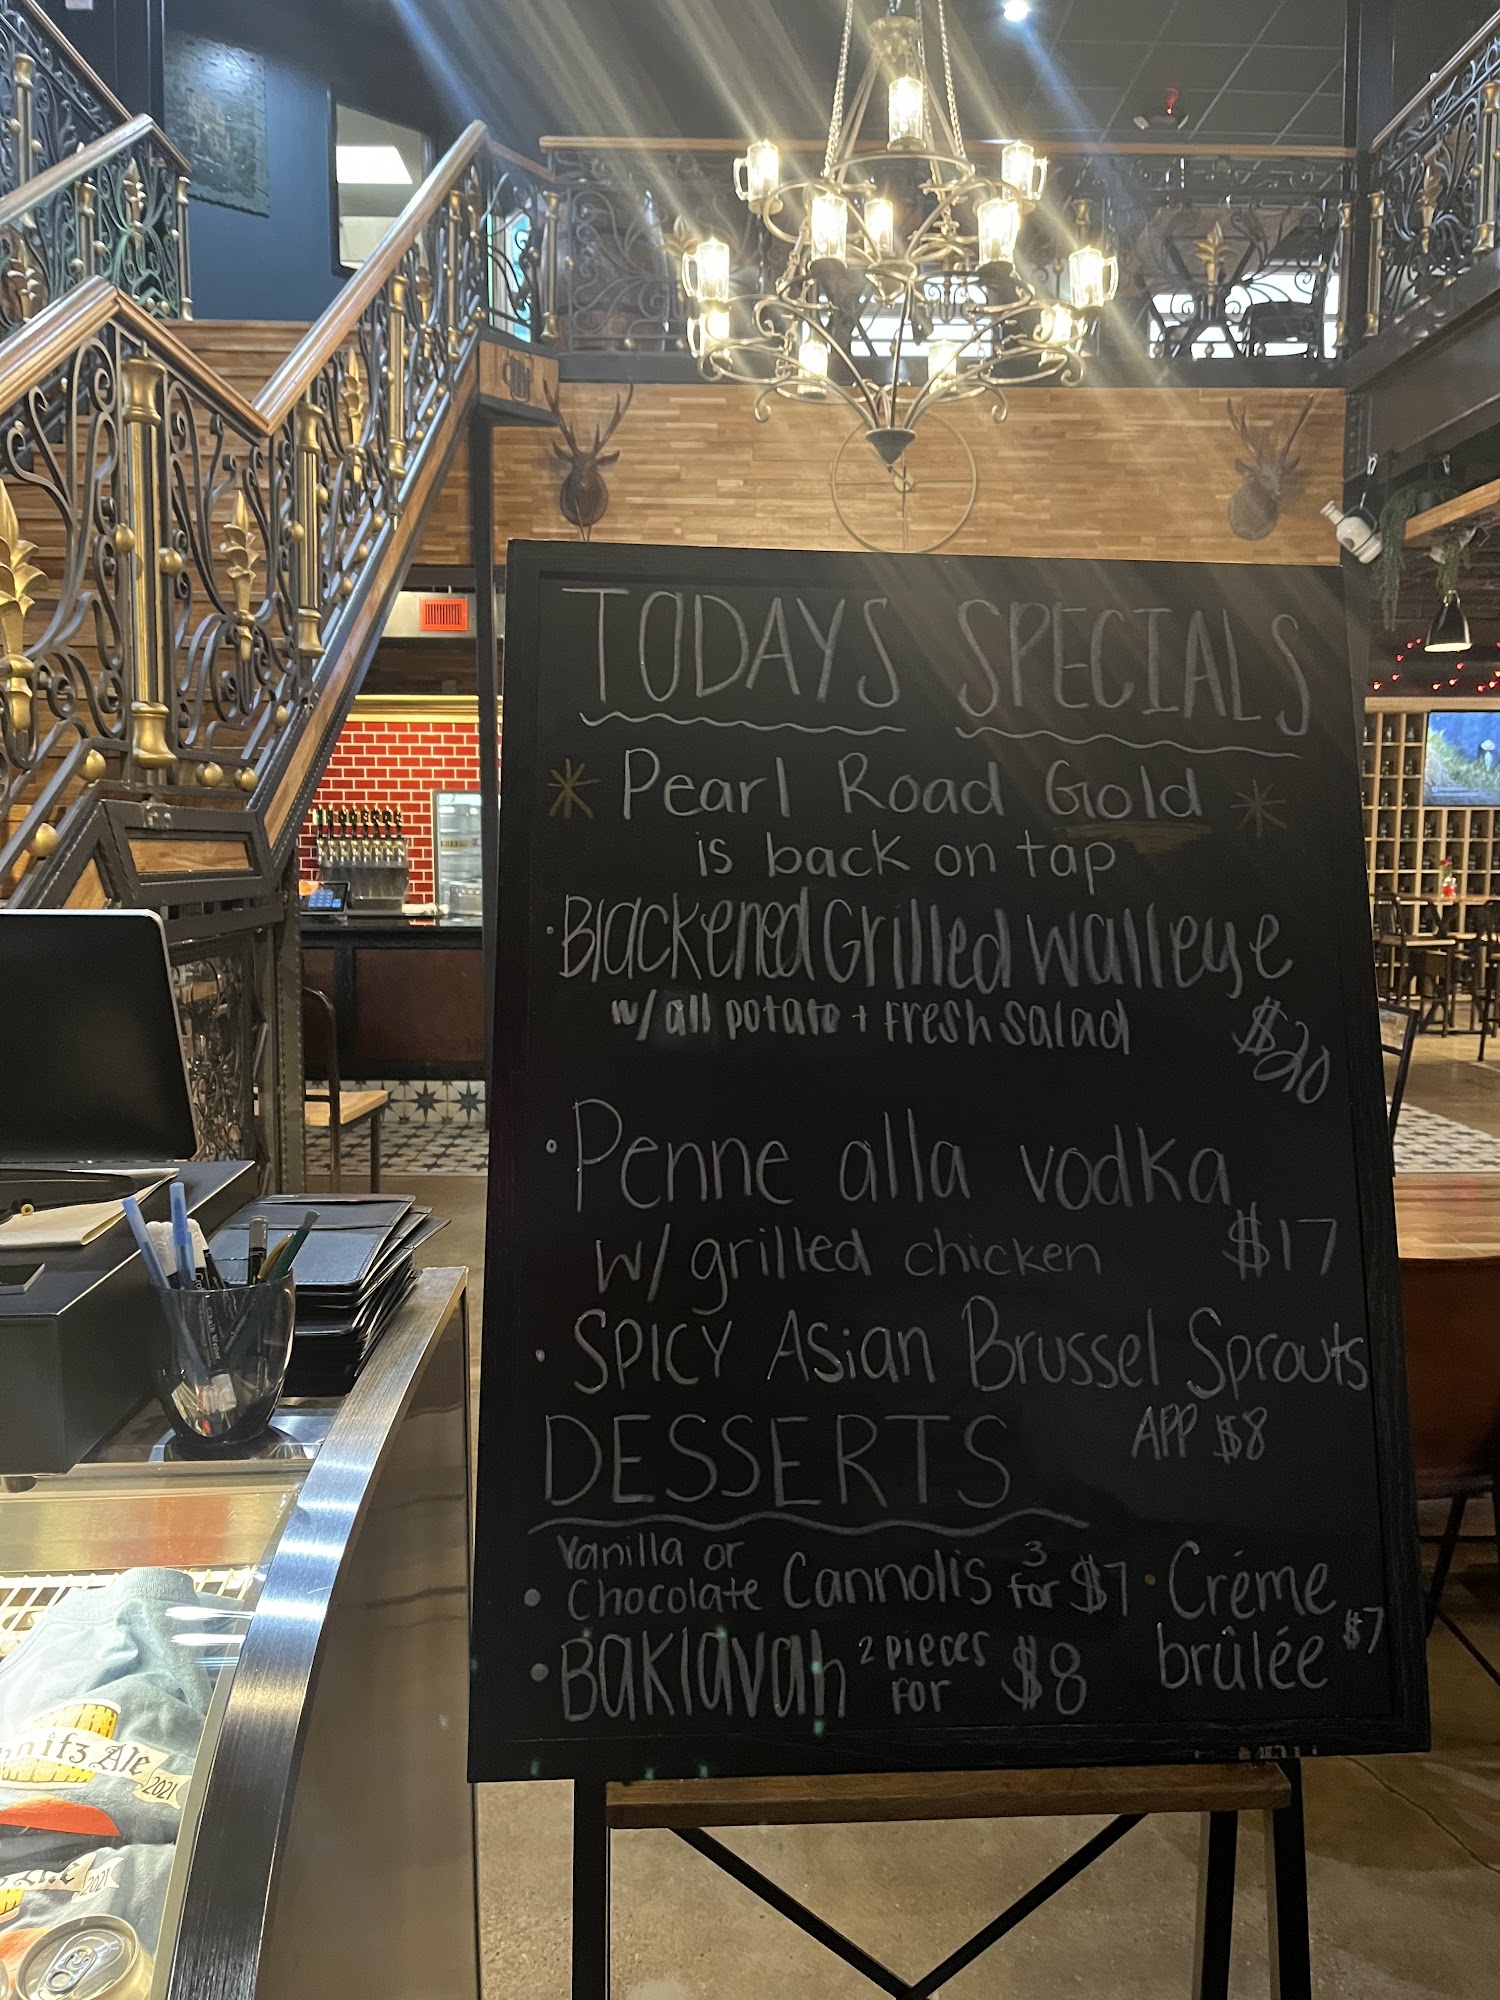 TODAYS SPECIALS
* Pearl Road Gold *
is back on tap
· Blackened Grilled Walleye
w/ all potato + Fresh Salad
$20
· Penne alla vodka
w/ grilled chicken $17
· SPICY Asian Brussel Sprouts
APP $8
DESSERTS
· Vanilla or
Chocolate Cannolis 3 for $7
· Baklavah 2 pieces for $8
· Créme
brûlée $7
Ale
2021
2021